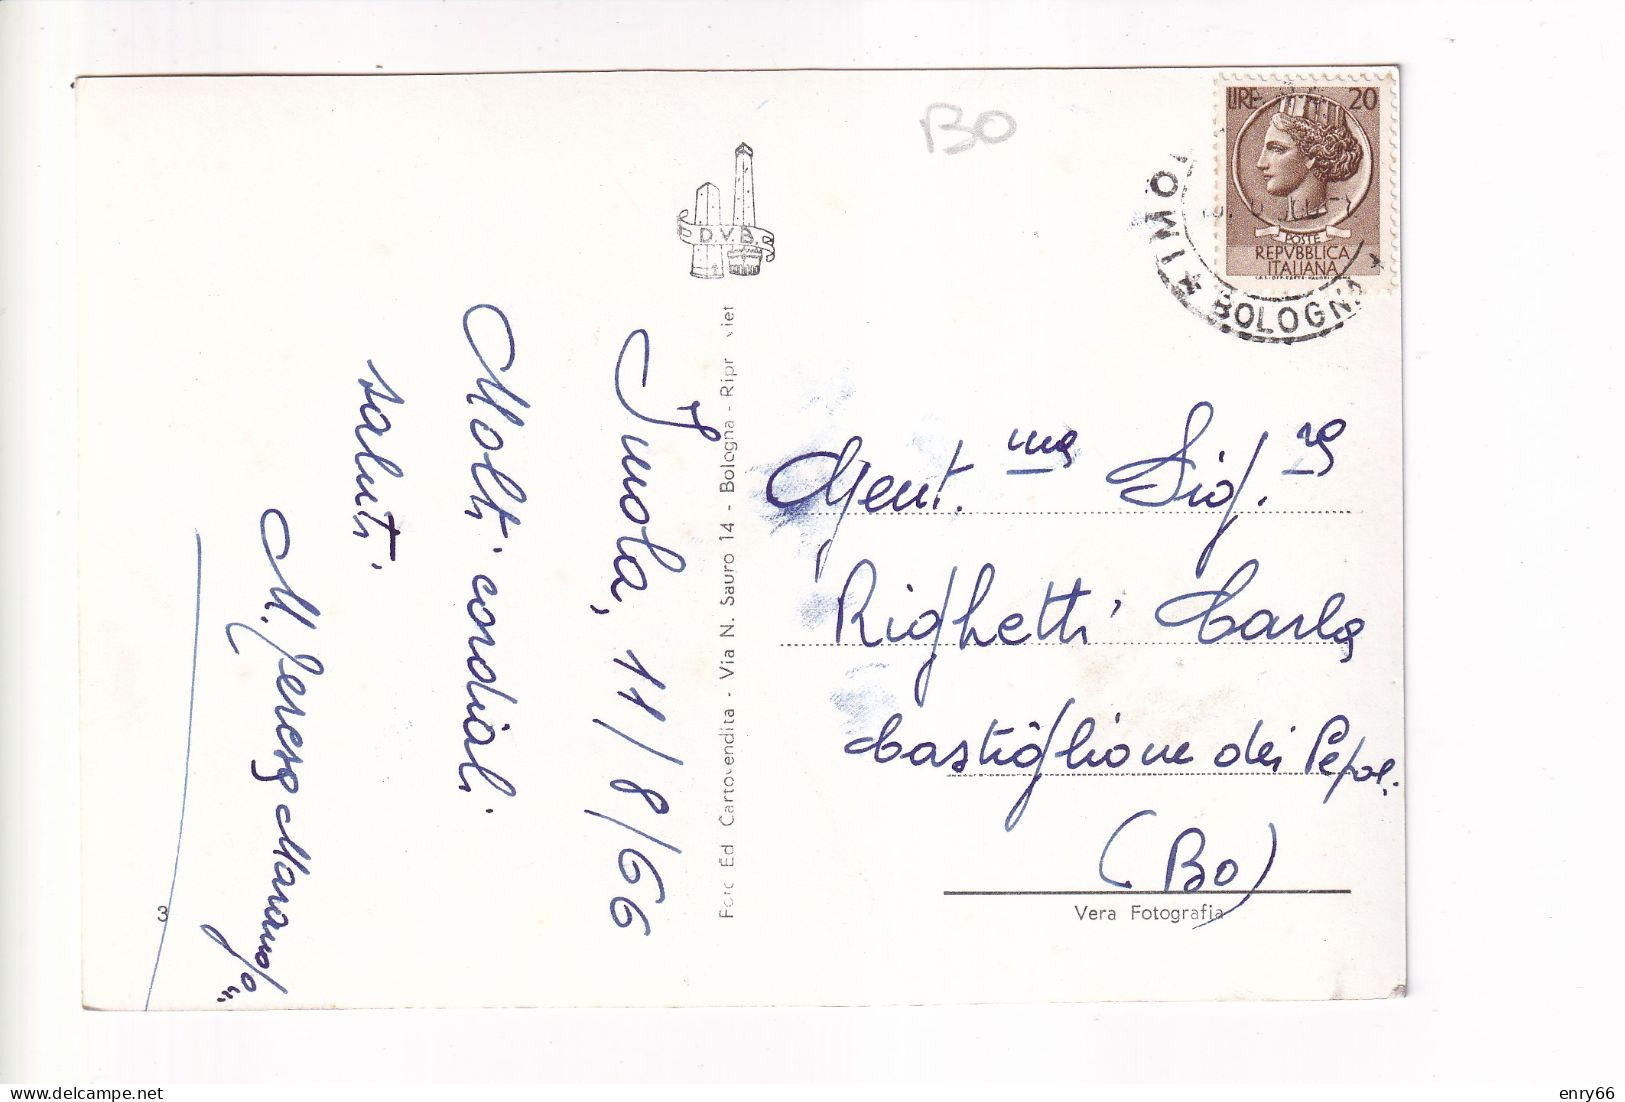 BO
LIRE 20
POSTE
REPVBBLICA
ITALIANA
* IMOL
BOLOGNA *
D.V.B.
Imola, 11/8/66
Molti cordiali
saluti.
Foto Ed Cartovendita - Via N. Sauro 14 - Bologna - Ripr viet
Gent.ma Sig.ra
Righetti Carla
Castiglione dei Pepoli
(Bo)
Vera Fotografia
3
delcampe.net
enry66